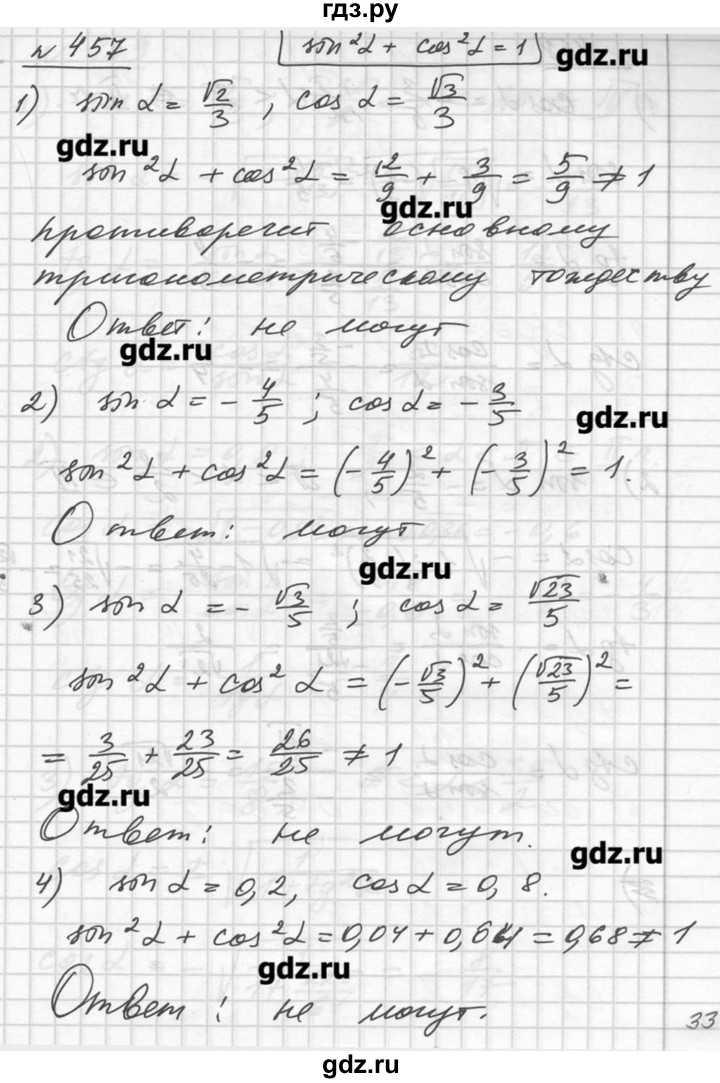 гдз.ру
№ 457 sin²α + cos²α = 1 gdz.ru
1) sin α = √2/3 , cos α = √3/3
gdz.ru
sin²α + cos²α = 2/9 + 3/9 = 5/9 ≠ 1
gdz.ru
противоречит основному
тригонометрическому тождеству
Ответ: не могут
gdz.ru
2) sin α = - 4/5 ; cos α = - 3/5
gdz.ru
sin²α + cos²α = (- 4/5)² + (- 3/5)² = 1.
Ответ: могут
gdz.ru
3) sin α = - √3/5 ; cos α = √23/5
sin²α + cos²α = (- √3/5)² + (√23/5)² =
= 3/25 + 23/25 = 26/25 ≠ 1
gdz.ru
Ответ: не могут.
gdz.ru
4) sin α = 0,2, cos α = 0,8.
sin²α + cos²α = 0,04 + 0,64 = 0,68 ≠ 1
gdz.ru
Ответ: не могут.
33
gdz.ru